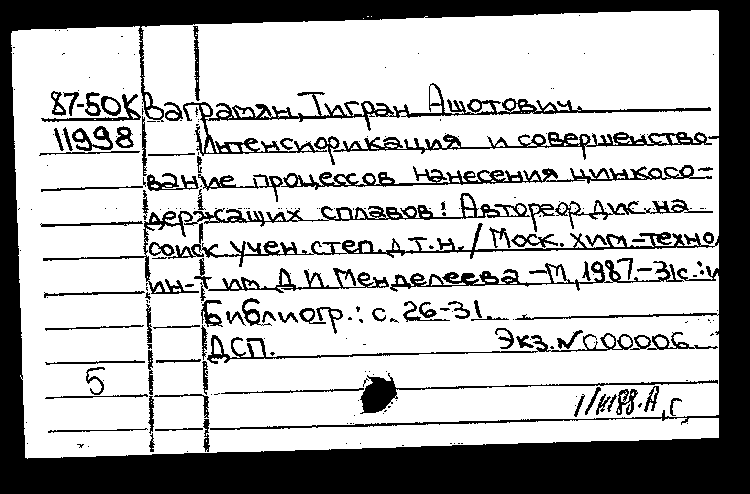 87-50К Ваграмян, Тигран Ашотович.
11998 Интенсификация и совершенство-
вание процессов нанесения цинкосо-
держащих сплавов: Автореф. дис. на
соиск. учен. степ. д.т.н. / Моск. хим.-техно
ин-т им. Д.И. Менделеева. -М., 1987.-31с.:и
Библиогр.: с. 26-31.
ДСП. Экз. №000006.
5
1/III88. А, г.